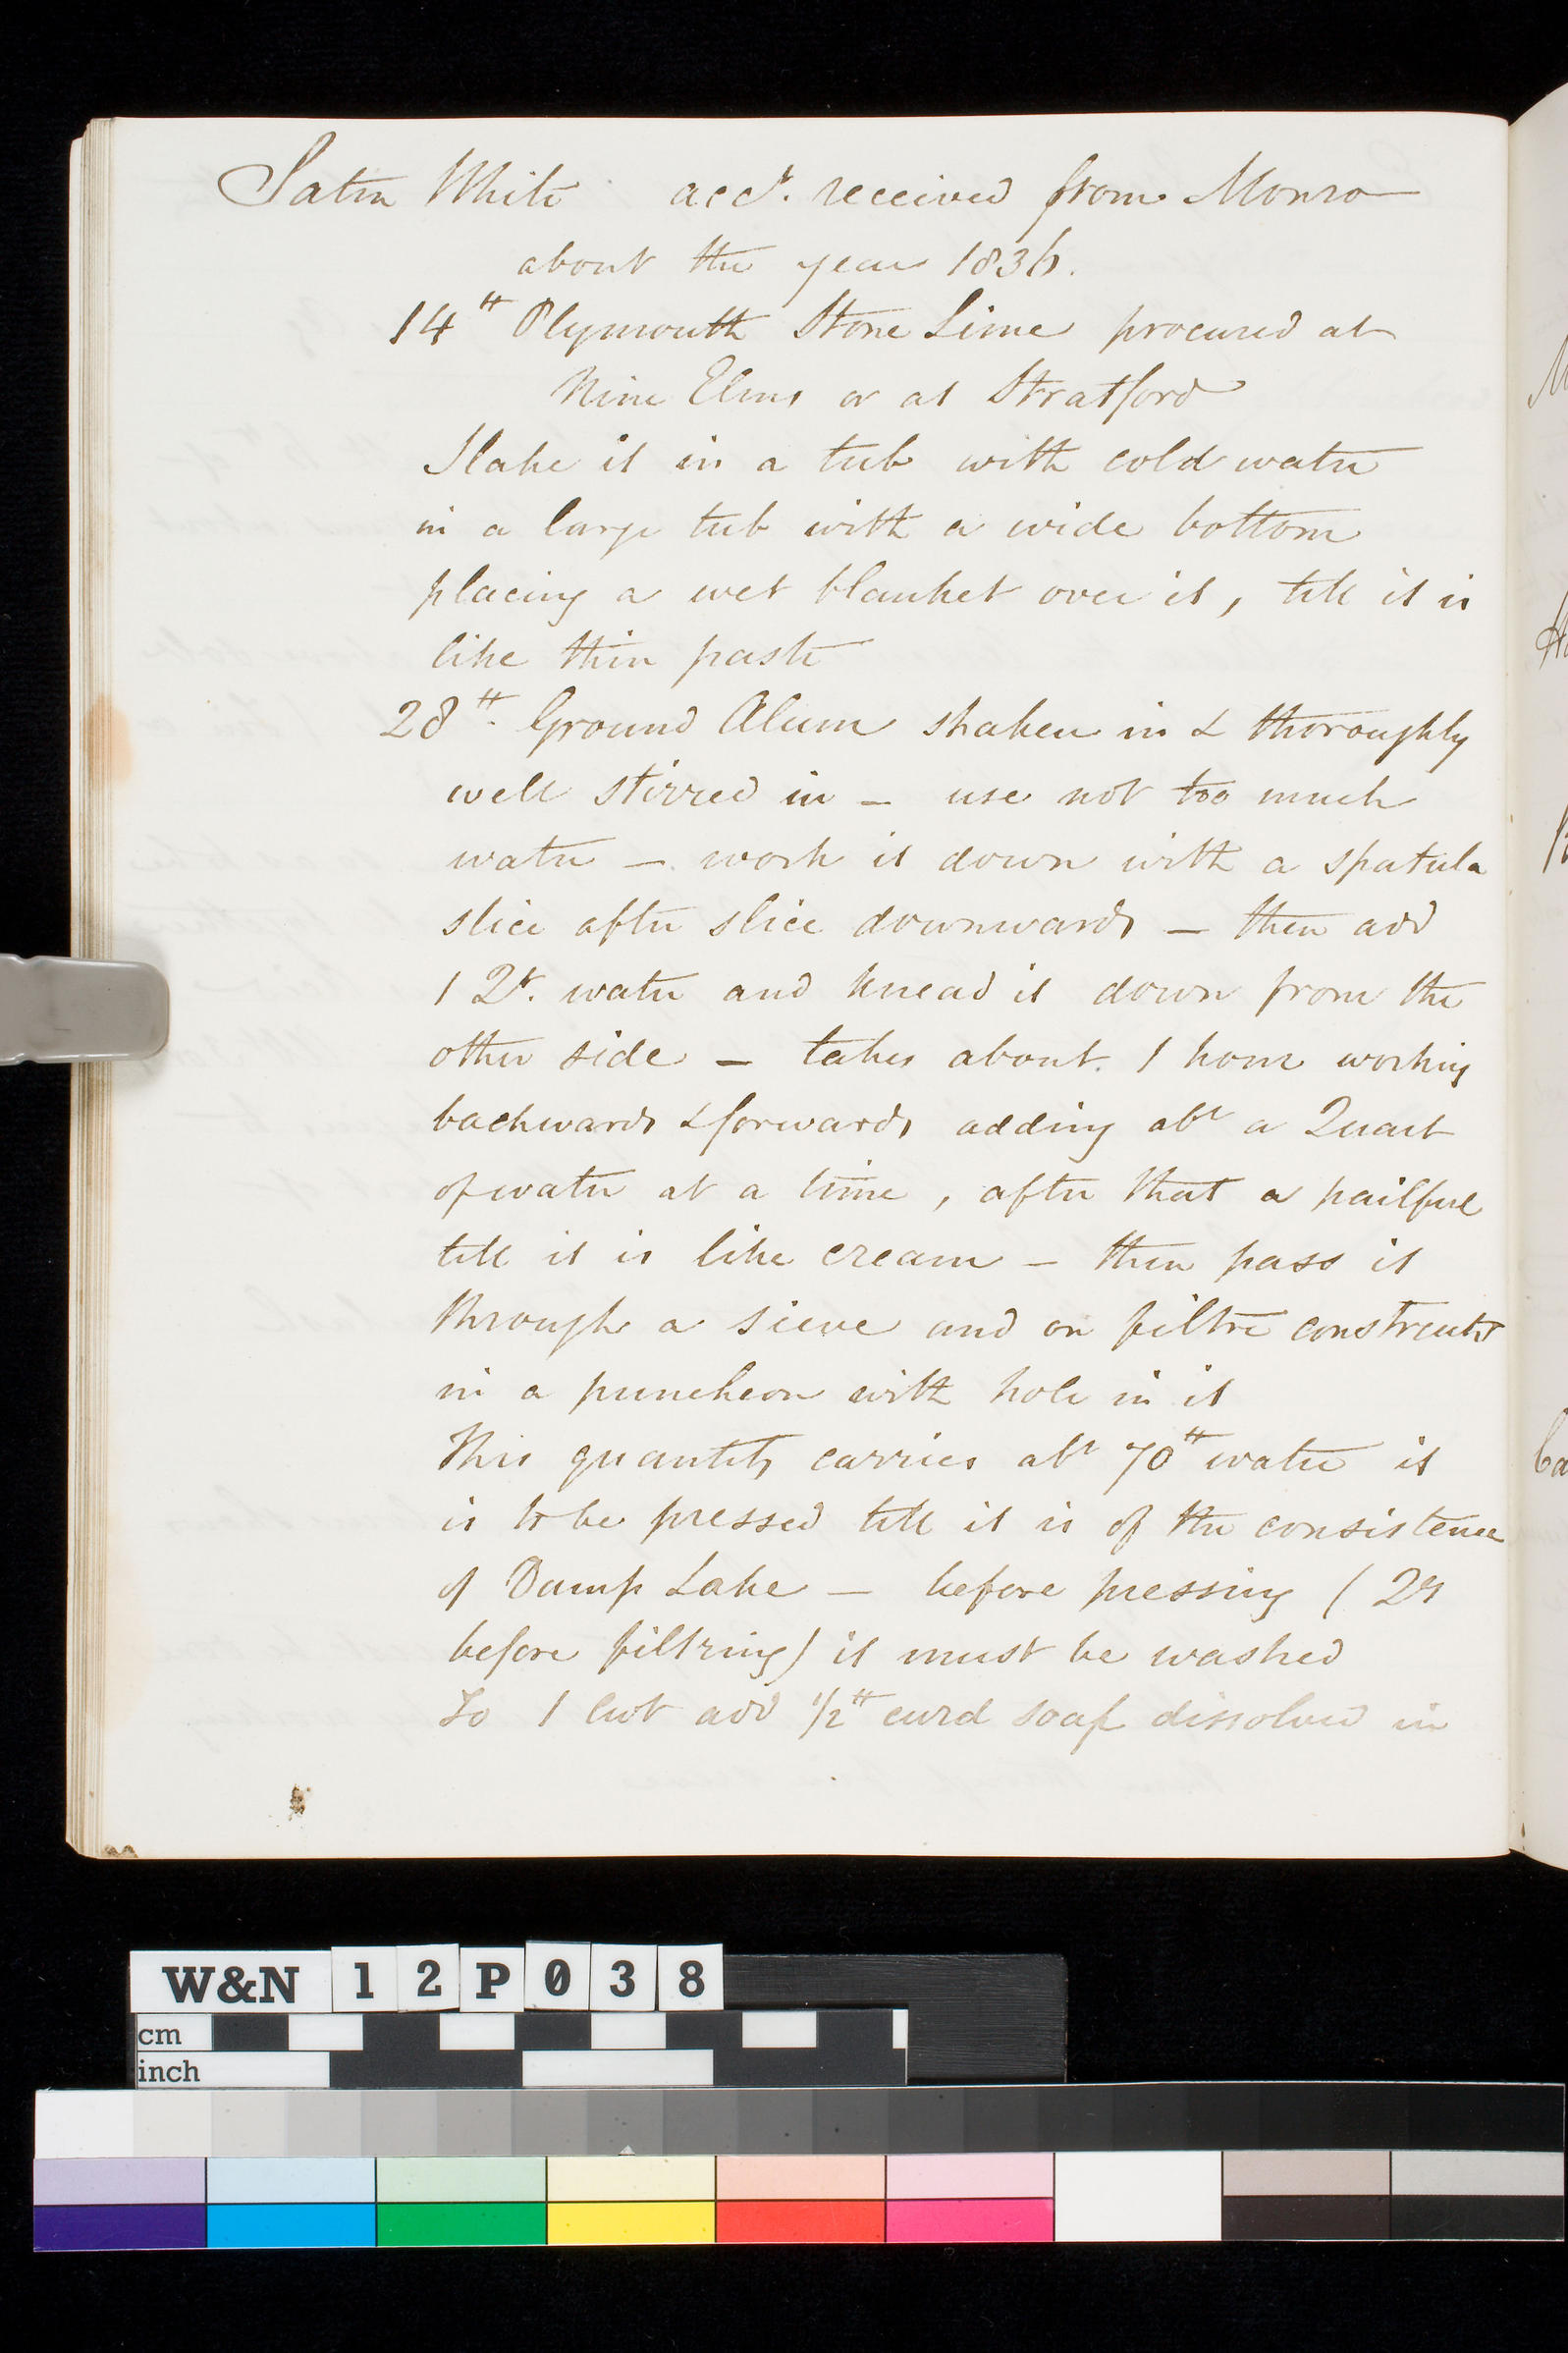 Satin White acct. received from Monro
about the year 1836.
14 tt Plymouth Stone Lime procured at
Nine Elms or at Stratford
Slake it in a tub with cold water
in a large tub with a wide bottom
placing a wet blanket over it, till it is
like thin paste
28 tt. Ground Alum shaken in & thoroughly
well stirred in – use not too much
water – work it down with a spatula
slice after slice downwards – then add
1 Qt. water and knead it down from the
other side – takes about 1 hour working
backwards & forwards adding abt a Quart
of water at a time, after that a pailful
till it is like cream – then pass it
through a sieve and on filtre constructd
in a puncheon with hole in it
This quantity carries abt 70 tt water it
is to be pressed till it is of the consistence
of Damp Lake – before pressing ( Qy
before filtring) it must be washed
To 1 Cwt add 1/2 tt curd soap dissolved in
W&N 12P038
cm
inch